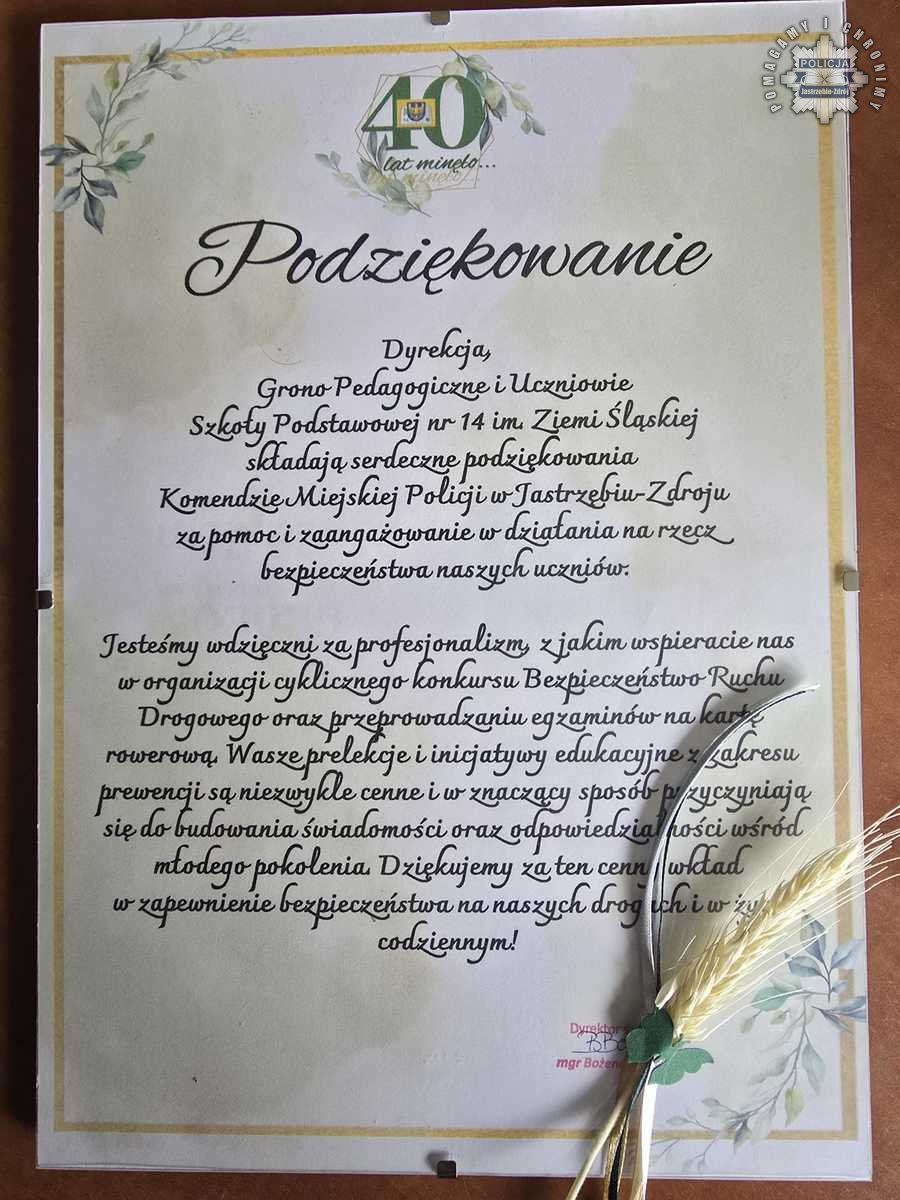 POMAGAMY I CHRONIMY
POLICJA
Jastrzębie-Zdrój
40
lat minęło...
Podziękowanie
Dyrekcja,
Grono Pedagogiczne i Uczniowie
Szkoły Podstawowej nr 14 im. Ziemi Śląskiej
składają serdeczne podziękowania
Komendzie Miejskiej Policji w Jastrzębiu-Zdroju
za pomoc i zaangażowanie w działania na rzecz
bezpieczeństwa naszych uczniów.
Jesteśmy wdzięczni za profesjonalizm, z jakim wspieracie nas
w organizacji cyklicznego konkursu Bezpieczeństwo Ruchu
Drogowego oraz przeprowadzaniu egzaminów na kartę
rowerową. Wasze prelekcje i inicjatywy edukacyjne z zakresu
prewencji są niezwykle cenne i w znaczący sposób przyczyniają
się do budowania świadomości oraz odpowiedzialności wśród
młodego pokolenia. Dziękujemy za ten cenny wkład
w zapewnienie bezpieczeństwa na naszych drogach i w
codziennym!
Dyrektor
mgr Bożena